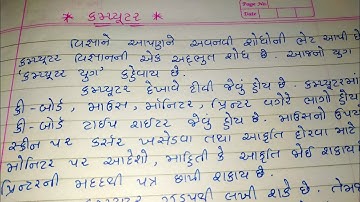 Page No.
Date
* કમ્પ્યુટર *
વિજ્ઞાને આપણને અવનવી શોધોની ભેટ આપી છે
કમ્પ્યુટર વિજ્ઞાનની એક અદ્ભુત શોધ છે. આજનો યુગ
'કમ્પ્યુટર યુગ' કહેવાય છે.
કમ્પ્યુટર દેખાવે ટીવી જેવું હોય છે. કમ્પ્યુટરમાં
કી-બોર્ડ, માઉસ, મોનિટર, પ્રિન્ટર વગેરે ભાગો હોય
કી-બોર્ડ ટાઈપ રાઈટર જેવું હોય છે. માઉસનો ઉપયોગ
સ્ક્રીન પર કર્સર ખસેડવા તથા આકૃતિ દોરવા માટે
મોનિટર પર આદેશો, માહિતી કે આકૃતિ જોઈ શકાય
પ્રિન્ટરની મદદથી પત્ર છાપી શકાય છે.
કમ્પ્યુટર ઝડપથી લખી શકે છે. તેમાં